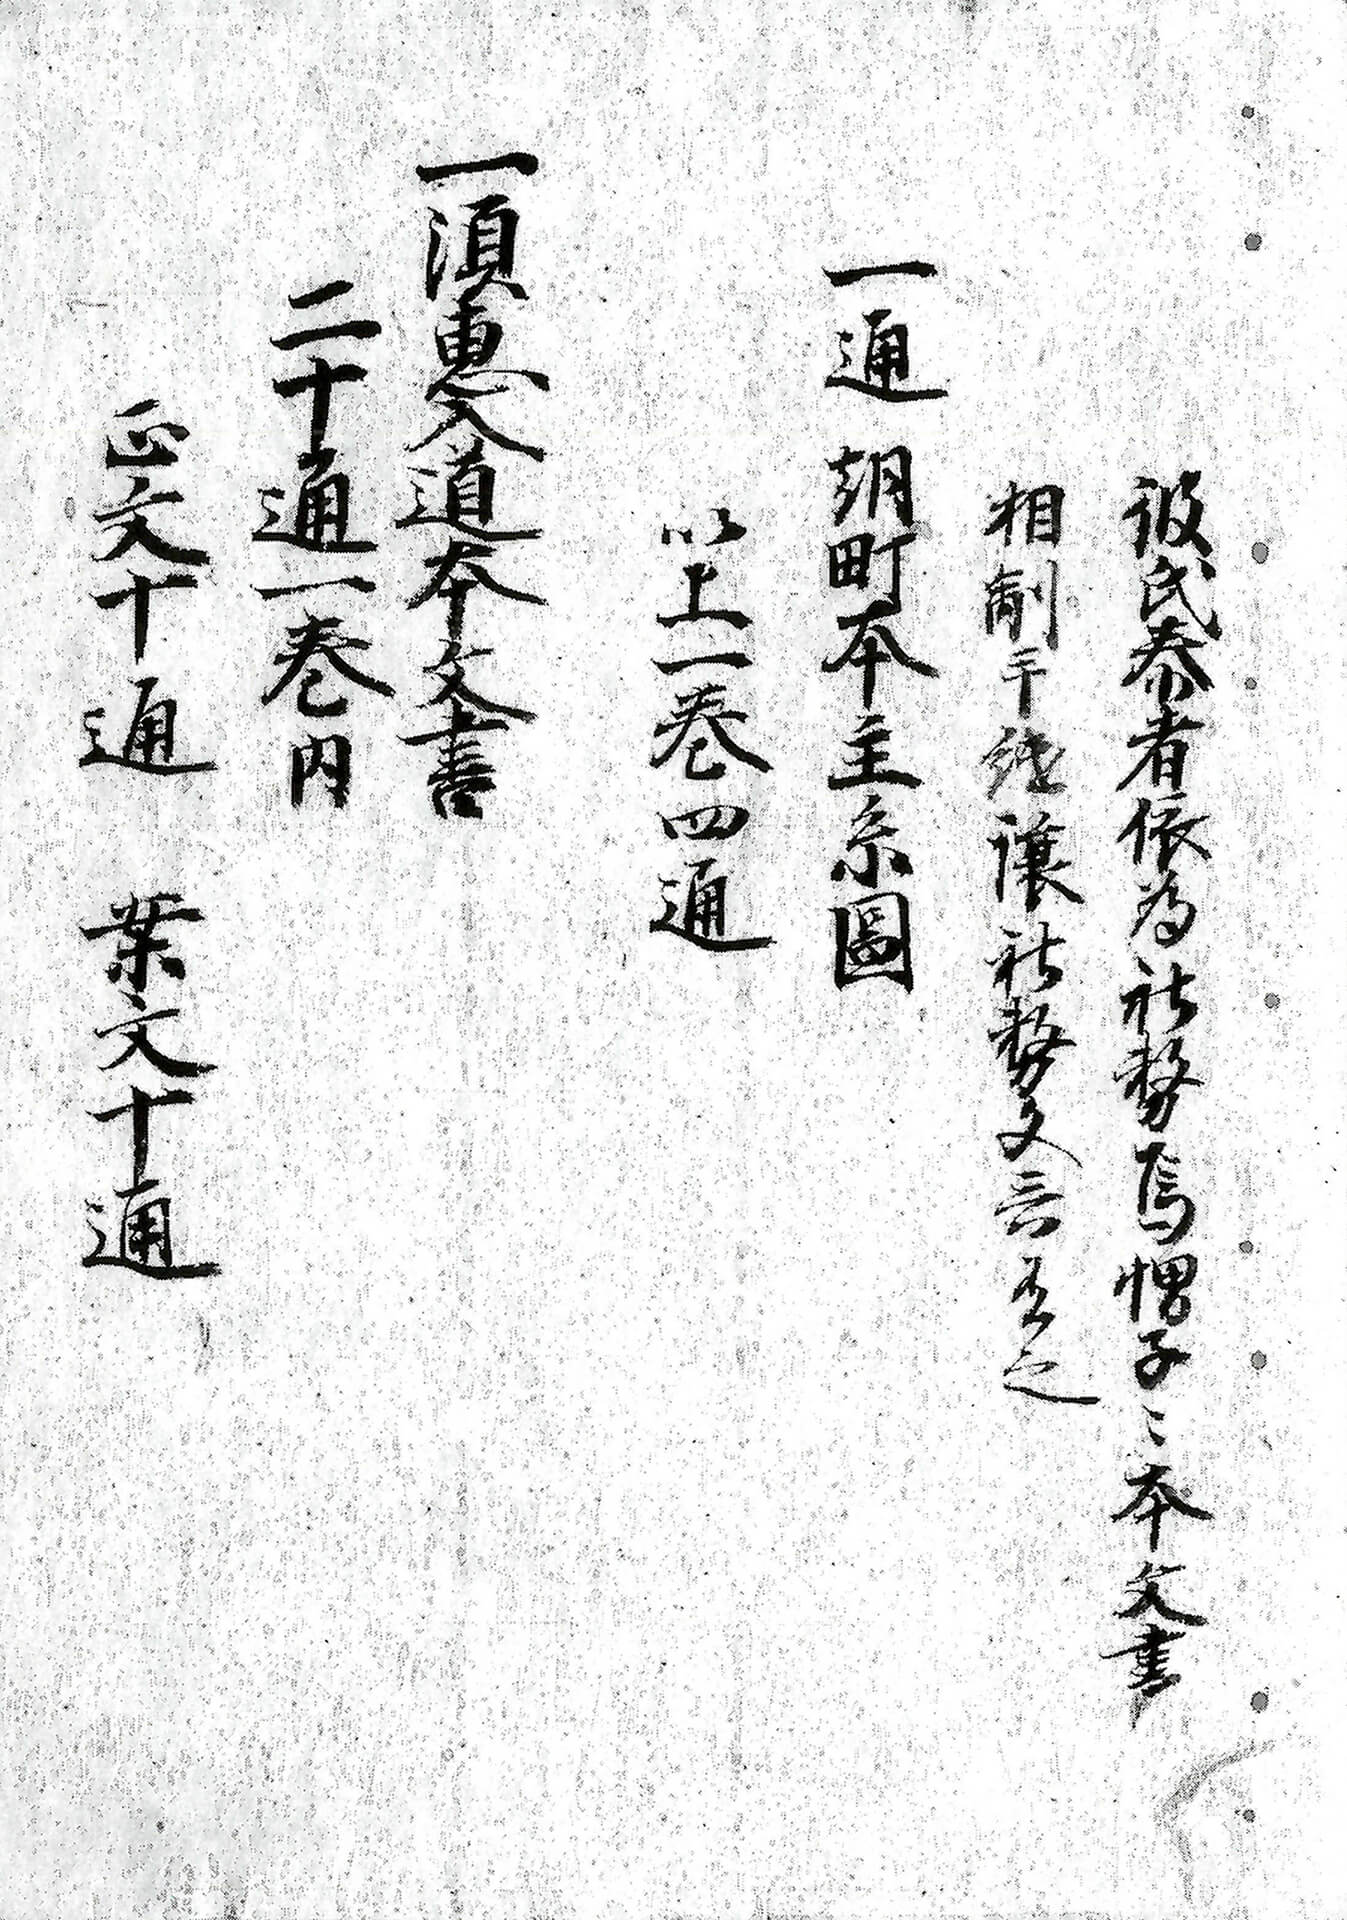 彼氏泰者依為社務烏帽子〻本文書
相副 讓社務文言有之
一通 朝町本主系圖
以上一巻四通
一須惠入道本文書
二十通一巻内
正文十通 案文十通